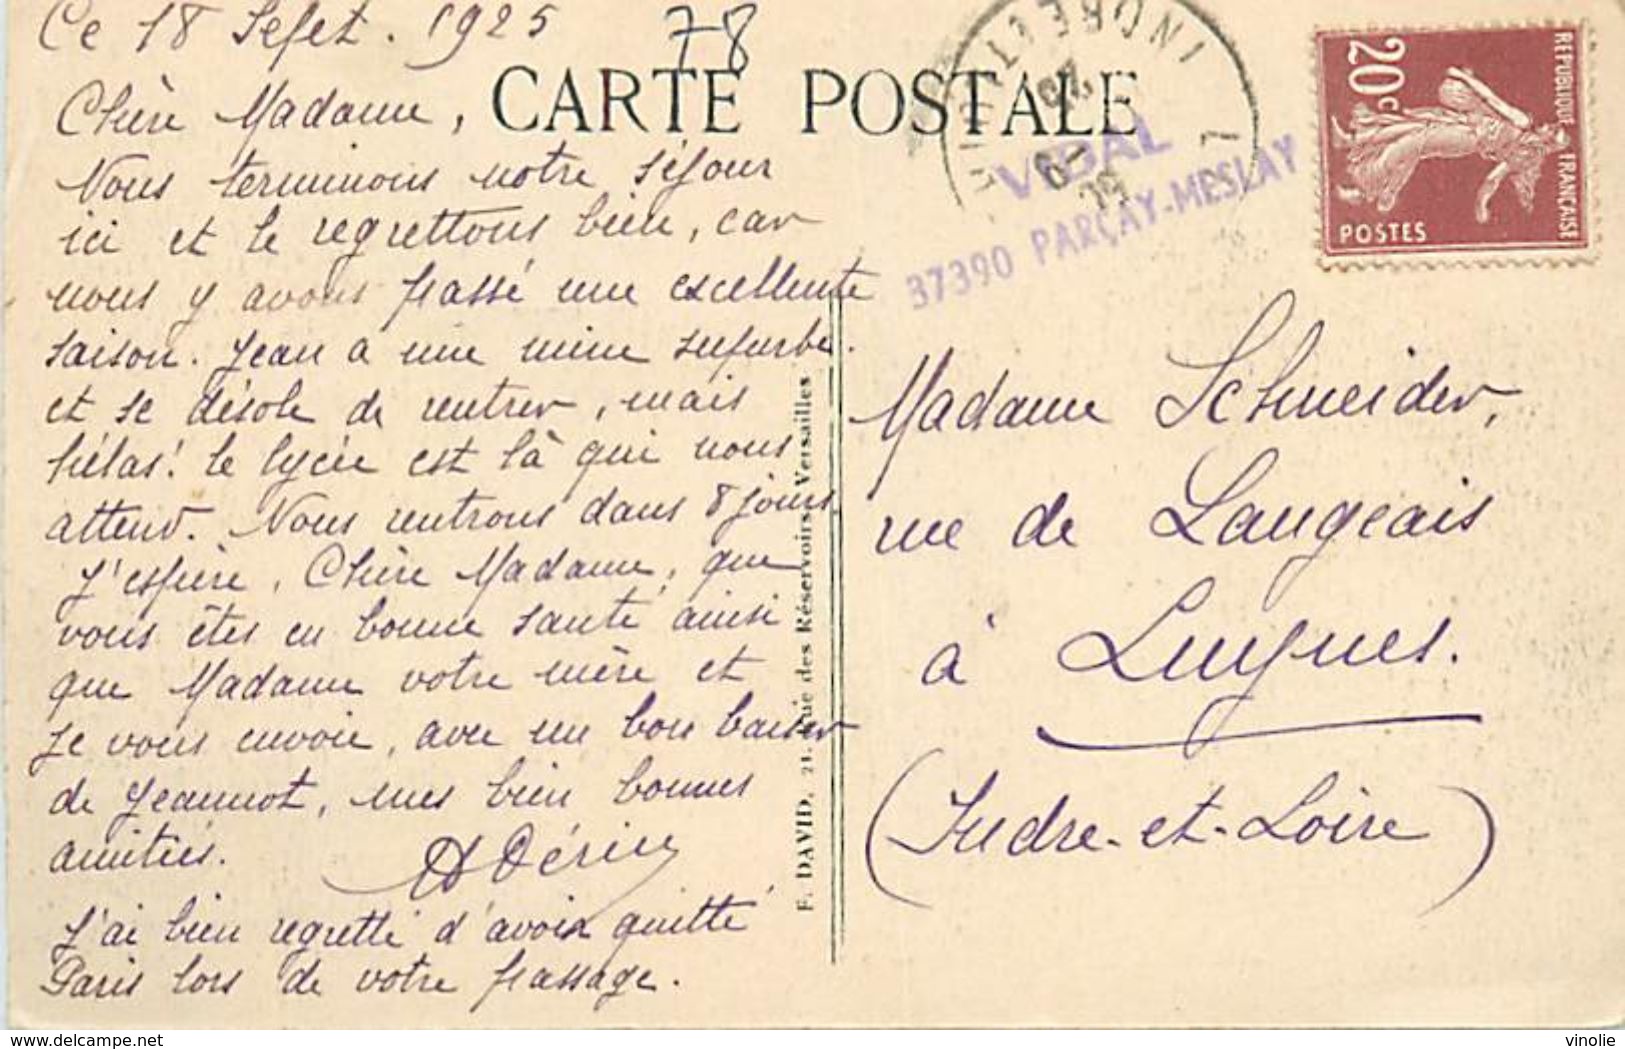 Ce 18 Sept. 1925
78
CARTE POSTALE
Chère Madame,
Nous terminons notre séjour
ici et le regrettons bien, car
nous y avons passé une excellente
saison. Jean a une mine superbe
et se désole de rentrer, mais
hélas! le lycée est là qui nous
attend. Nous rentrons dans 8 jours.
J'espère, Chère Madame, que
vous êtes en bonne santé ainsi
que Madame votre mère et
je vous envoie, avec un bon baiser
de Jeannot, mes bien bonnes
amitiés.
J'ai bien regretté d'avoir quitté
Paris lors de votre passage.
F. DAVID, 21, Rue des Réservoirs, Versailles
INDRE ET LOIRE
VIDAL
37390 PARÇAY-MESLAY
REPUBLIQUE FRANÇAISE
20c
POSTES
Madame Schneider,
rue de Langeais
à Luynes.
(Indre-et-Loire)
delcampe.net
vinolie